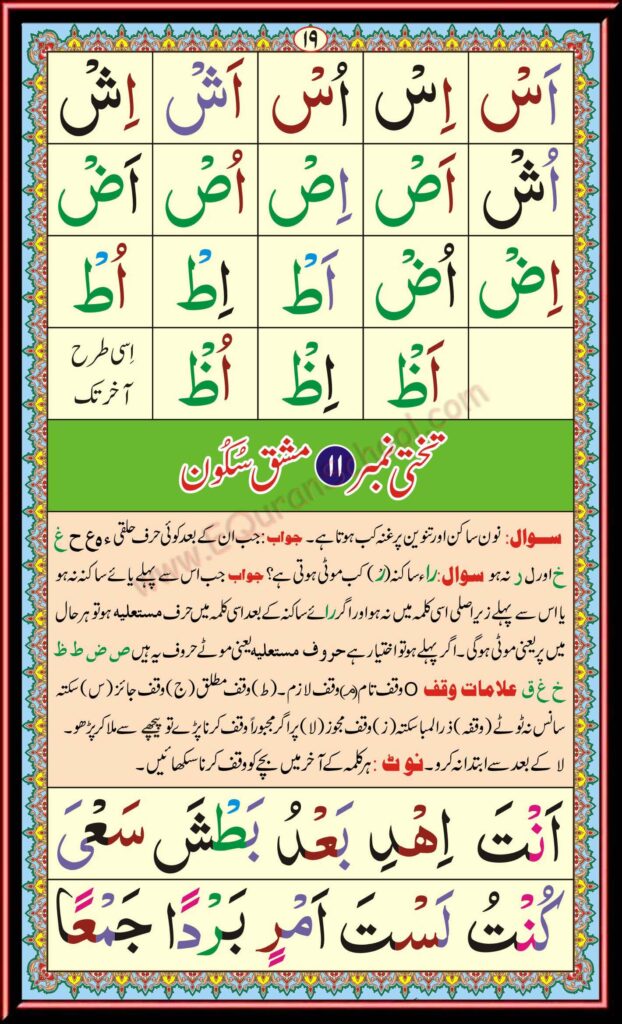 ١٩
اَسْ اِسْ اُسْ اَشْ اِشْ
اُشْ اَصْ اِصْ اُصْ اَضْ
اِضْ اُضْ اَطْ اِطْ اُطْ
اَظْ اِظْ اُظْ اِسی طرح
آخر تک
تختی نمبر ۱۱ مشق سُکُون
سوال: نون ساکن اور تنوین پر غنہ کب ہوتا ہے۔ جواب: جب ان کے بعد کوئی حرف حلقی ء ہ ع ح غ
خ اور ل ر نہ ہو سوال: راء ساکنہ (رْ) کب موٹی ہوتی ہے؟ جواب جب اس سے پہلے یائے ساکنہ نہ ہو
یا اس سے پہلے زیر اصلی اسی کلمہ میں نہ ہو اور اگر رائے ساکنہ کے بعد اسی کلمہ میں حرف مستعلیہ ہو تو ہر حال
میں پر یعنی موٹی ہوگی۔ اگر پہلے ہو تو اختیار ہے حروف مستعلیہ یعنی موٹے حروف یہ ہیں ص ض ط ظ
خ غ ق علامات وقف O وقف تام (مـ) وقف لازم۔ (ط) وقف مطلق (ج) وقف جائز (س) سکتہ
سانس نہ ٹوٹے (وقفہ) ذرا لمبا سکتہ (ز) وقف مجوز (لا) پر اگر مجبوراً وقف کرنا پڑے تو پیچھے سے ملا کر پڑھو۔
لا کے بعد سے ابتدا نہ کرو۔ نوٹ: ہر کلمہ کے آخر میں بچے کو وقف کرنا سکھائیں۔
اَنْتَ اِهْدِ بَعْدُ بَطْشَ سَعْیَ
كُنْتُ لَسْتَ اَمْرٍ بَرْدًا جَمْعًا
www.EQuranSchool.com